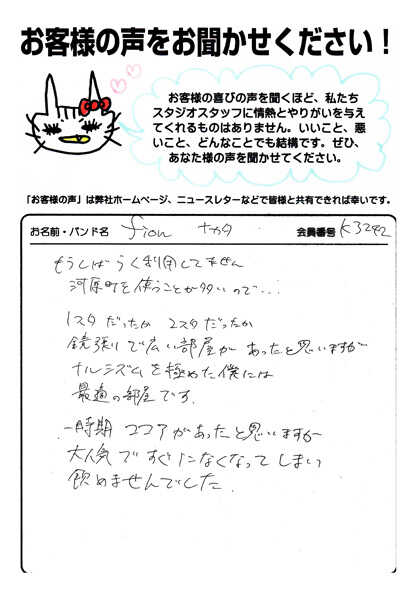 お客様の声をお聞かせください！
お客様の喜びの声を聞くほど、私たち
スタジオスタッフに情熱とやりがいを与え
てくれるものはありません。いいこと、悪
いこと、どんなことでも結構です。ぜひ、
あなた様の声を聞かせてください。
「お客様の声」は弊社ホームページ、ニュースレターなどで皆様と共有できれば幸いです。
お名前・バンド名 fion ナカタ 会員番号 K3242
もうしばらく利用してません
河原町を使うことが多いので...
1スタだったか 2スタだったか
鏡張りで広い部屋があったと思いますが
ナルシズムを極めた僕には
最適の部屋です.
一時期 ココアがあったと思いますが
大人気ですぐになくなってしまい
飲めませんでした.